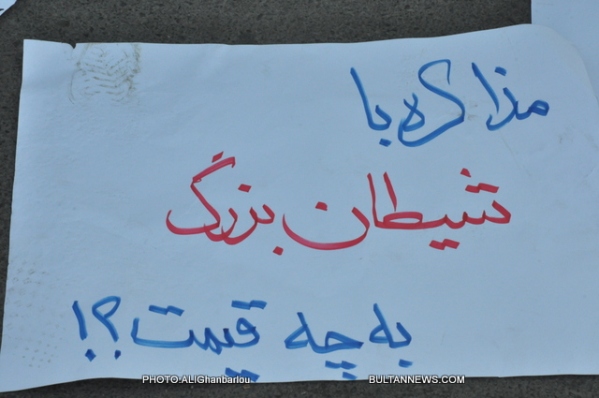 مذاکره با
شیطان بزرگ
به چه قیمت؟!
PHOTO:ALIGhanbarlou
BULTANNEWS.COM